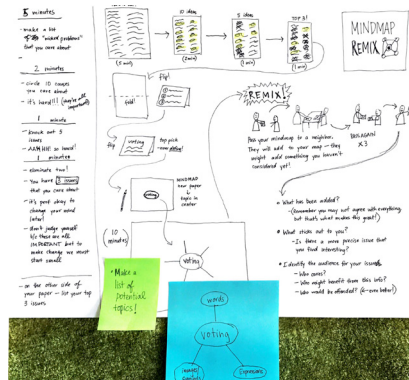 5 minutes
- make a list
"micro problems"
that you care about
2 minutes
- circle 10 issues
you care about
- it's hard!!! (they're all
important!)
1 minute
- knock out 5
issues
- AAHHH so hard!
1 minute
- eliminate two!
- you have 3 issues
that you care about
- it's perf okay to
change your mind
later!
- don't judge yourself
b/c these are all
IMPORTANT but to
make change we must
start small
- on the other side of
your paper - list your top
3 issues
(5 min)
10 ideas
(2 min)
5 ideas
(1 min)
TOP 3!
(1 min)
MINDMAP
REMIX
flip!
fold!
flip
voting
top pick
REMIX!
voting
MINDMAP
new paper
topic in
center
(10
minutes)
voting
Pass your mindmap to a neighbor.
They will add to your map - they
might add something you haven't
considered yet!
DO IT AGAIN
x3
What has been added?
- (remember you may not agree with everything
but that's what makes this great!)
What sticks out to you?
- Is there a more precise issue that
you find interesting?
Identify the audience for your issue
- Who cares?
- Who might benefit from this info?
- Who would be offended? (even better!)
Make a
list of
potential
topics!
words
voting
images/
symbols
Expressions